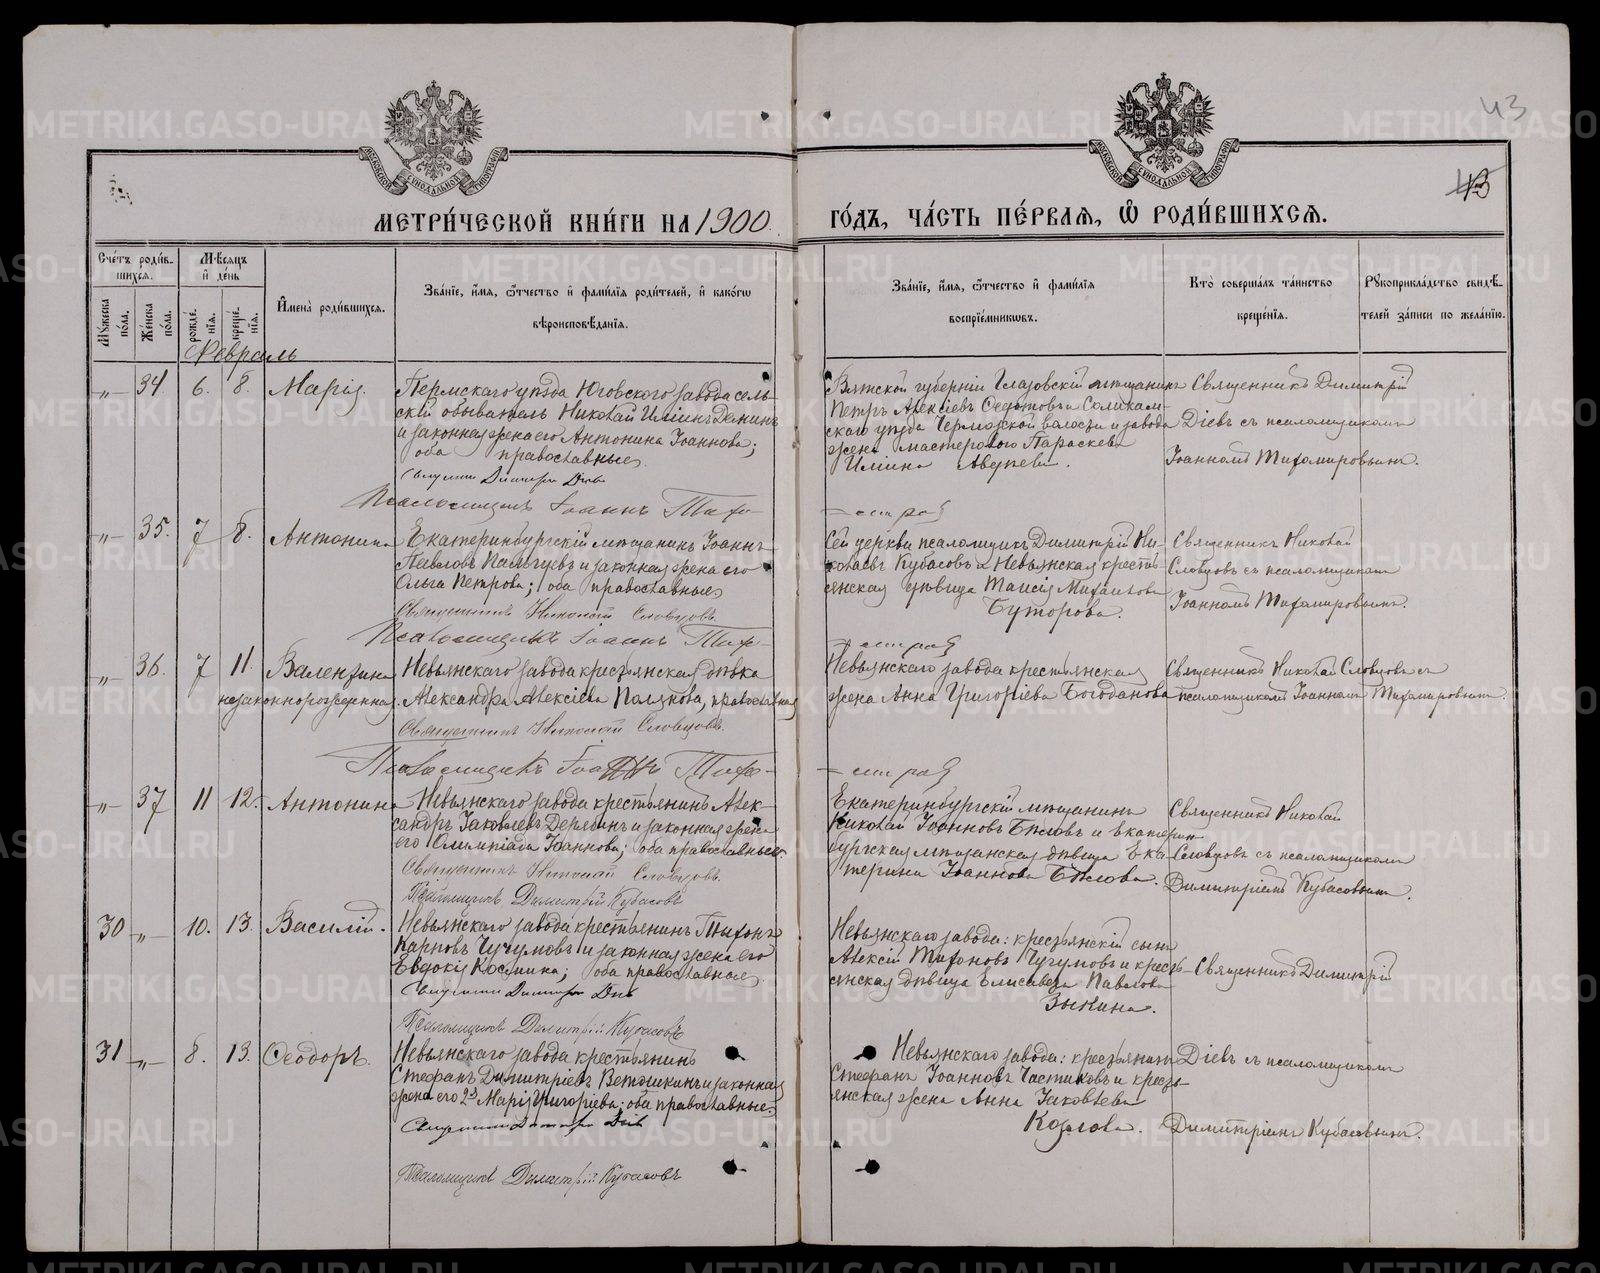 43
43
МОСКОВСКОЙ СѴНОДАЛЬНОЙ ТИПОГРАФІИ
МОСКОВСКОЙ СѴНОДАЛЬНОЙ ТИПОГРАФІИ
МЕТРИ́ЧЕСКОЙ КНИ́ГИ НА 1900
ГО́ДЪ, ЧА́СТЬ ПЕ́РВАѦ, Ѿ РОДИ́ВШИХСѦ.
Сче́тъ роди́в-
шихсѧ.
Мꙋ́жеска по́ла.
Же́нска по́ла.
М-ѣсѧцъ
и҆ де́нь
рожде́нїѧ.
креще́нїѧ.
И҆мена̀ роди́вшихсѧ.
Зва́нїе, и҆́мѧ, ѻ҆́тчество и҆ фами́лїѧ роди́телей, и҆ како́гѡ
вѣроисповѣ́данїѧ.
Зва́нїе, и҆́мѧ, ѻ҆́тчество и҆ фами́лїѧ
воспрїе́мникѡвъ.
Кто̀ соверша́лъ та́инство
креще́нїѧ.
Рꙋкоприкла́дство свидѣ́-
телей за́писи по жела́нїю.
Февраль
„ 34 6. 8. Марія.
Пермскаго уѣзда Юговского завода сель-
скій обыватель Николай Иліинъ Деминъ
и законная жена его Антонина Іоаннова;
оба православные.
Священникъ Димитрій Діевъ
Псаломщикъ Іоаннъ Тихо-
Вятской губерніи Глазовскій мѣщанинъ
Петръ Алексіевъ Федотовъ и Соликам-
скаго уѣзда Чермозской волости и завода
жена мастерового Параскева
Иліина
Священникъ Димитрій
Діевъ съ псаломщикомъ
Іоанномъ Тихомировымъ.
„ 35. 7 8. Антонина
Екатеринбургскій мѣщанинъ Іоаннъ
Павловъ Пальгуевъ и законная жена его
Ольга Петрова; оба православные
Священникъ Николай Словцовъ.
Псаломщикъ Іоаннъ Тихо-
Сей церкви псаломщикъ Димитрій Ни-
колаевъ Кубасовъ и Невьянская кресть-
янская дѣвица Таисія Михаилова
Буторова.
Священникъ Николай
Словцовъ съ псаломщикомъ
Іоанномъ Тихомировымъ.
„ 36. 7 11. Валентина
незаконнорожденная.
Невьянскаго завода крестьянская дѣвка
Александра Алексіева Полякова, православная
Священникъ Николай Словцовъ.
Псаломщикъ Іоаннъ Тихо-
Невьянскаго завода крестьянская
жена Анна Григоріева Богданова
Священникъ Николай Словцовъ съ
псаломщикомъ Іоанномъ Тихомировымъ.
„ 37 11 12. Антонина
Невьянскаго завода крестьянинъ Алек-
сандръ Іаковлевъ Дерябинъ и законная жена
его Олимпіада Іоаннова; оба православные
Священникъ Николай Словцовъ.
Псаломщикъ Димитрій Кубасовъ
Екатеринбургскій мѣщанинъ
Николай Іоанновъ Бѣловъ и Екатерин-
бургская мѣщанская дѣвица Ека-
терина Іоаннова Бѣлова.
Священникъ Николай
Словцовъ съ псаломщикомъ
Димитріемъ Кубасовымъ.
30 „ 10. 13. Василій.
Невьянскаго завода крестьянинъ Тихонъ
Карповъ Чучумовъ и законная жена его
Евдокія Космина; оба православные
Священникъ Димитрій Діевъ
Псаломщикъ Димитрій Кубасовъ
Невьянскаго завода: крестьянскій сынъ
Алексій Тихоновъ Чучумовъ и кресть-
янская дѣвица Елисавета Павлова
Зыкина.
Священникъ Димитрій
31 „ 8. 13. Ѳеодоръ.
Невьянскаго завода крестьянинъ
Стефанъ Димитріевъ Ветошкинъ и законная
жена его Марія Григоріева; оба православные
Священникъ Димитрій Діевъ
Псаломщикъ Димитрій Кубасовъ
Невьянскаго завода: крестьянинъ
Стефанъ Іоанновъ Частиковъ и кресть-
янская жена Анна Іаковлева
Козлова.
Діевъ съ псаломщикомъ
Димитріемъ Кубасовымъ.
METRIKI.GASO-URAL.RU